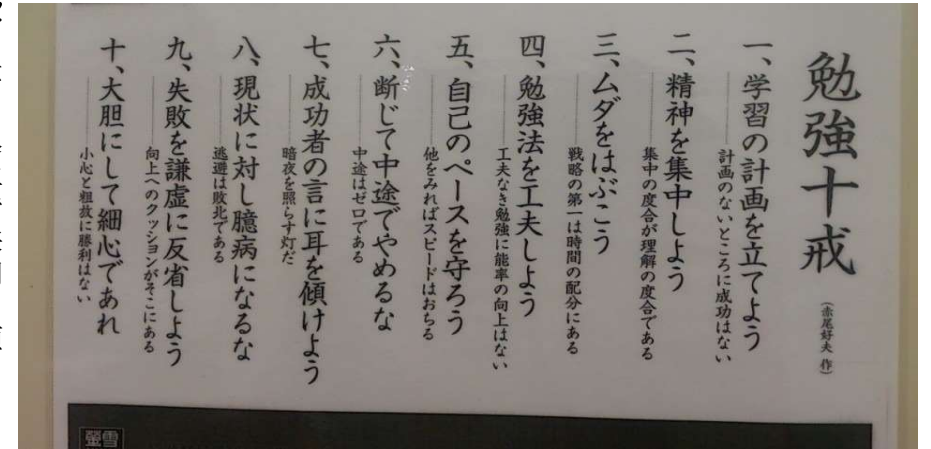 勉強十戒
(赤尾好夫 作)
一、学習の計画を立てよう
計画のないところに成功はない
二、精神を集中しよう
集中の度合が理解の度合である
三、ムダをはぶこう
戦略の第一は時間の配分にある
四、勉強法を工夫しよう
工夫なき勉強に能率の向上はない
五、自己のペースを守ろう
他をみればスピードはおちる
六、断じて中途でやめるな
中途はゼロである
七、成功者の言に耳を傾けよう
暗夜を照らす灯だ
八、現状に対し臆病になるな
逃避は敗北である
九、失敗を謙虚に反省しよう
向上へのクッションがそこにある
十、大胆にして細心であれ
小心と粗放に勝利はない
螢雪